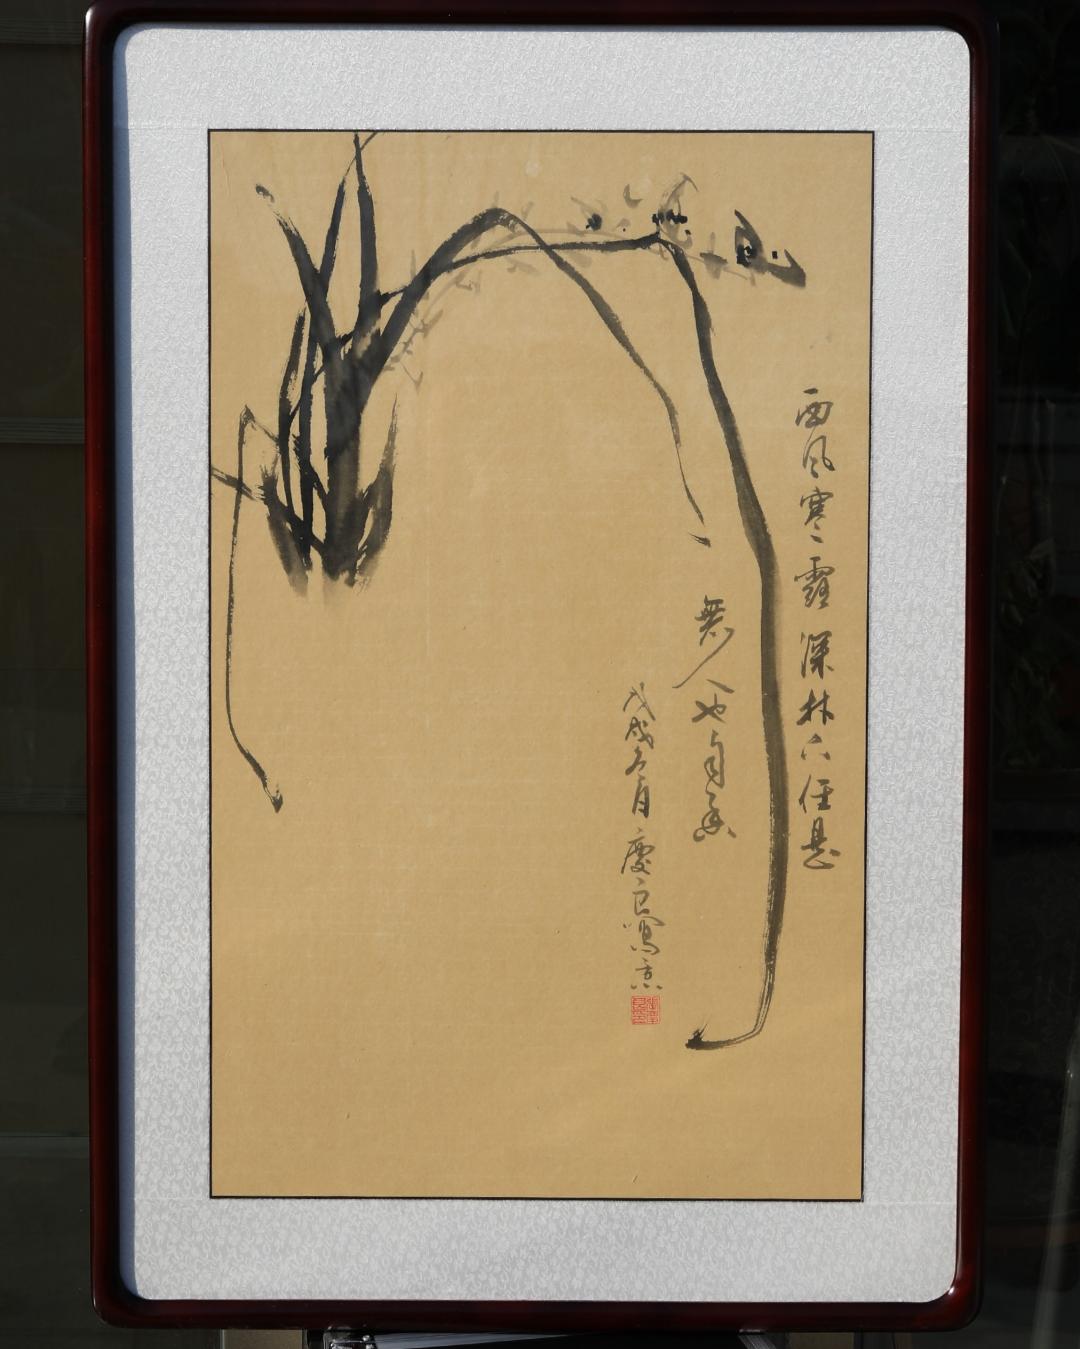 西風寒露深林下任是
無人也自香
戊戌冬月慶良寫意